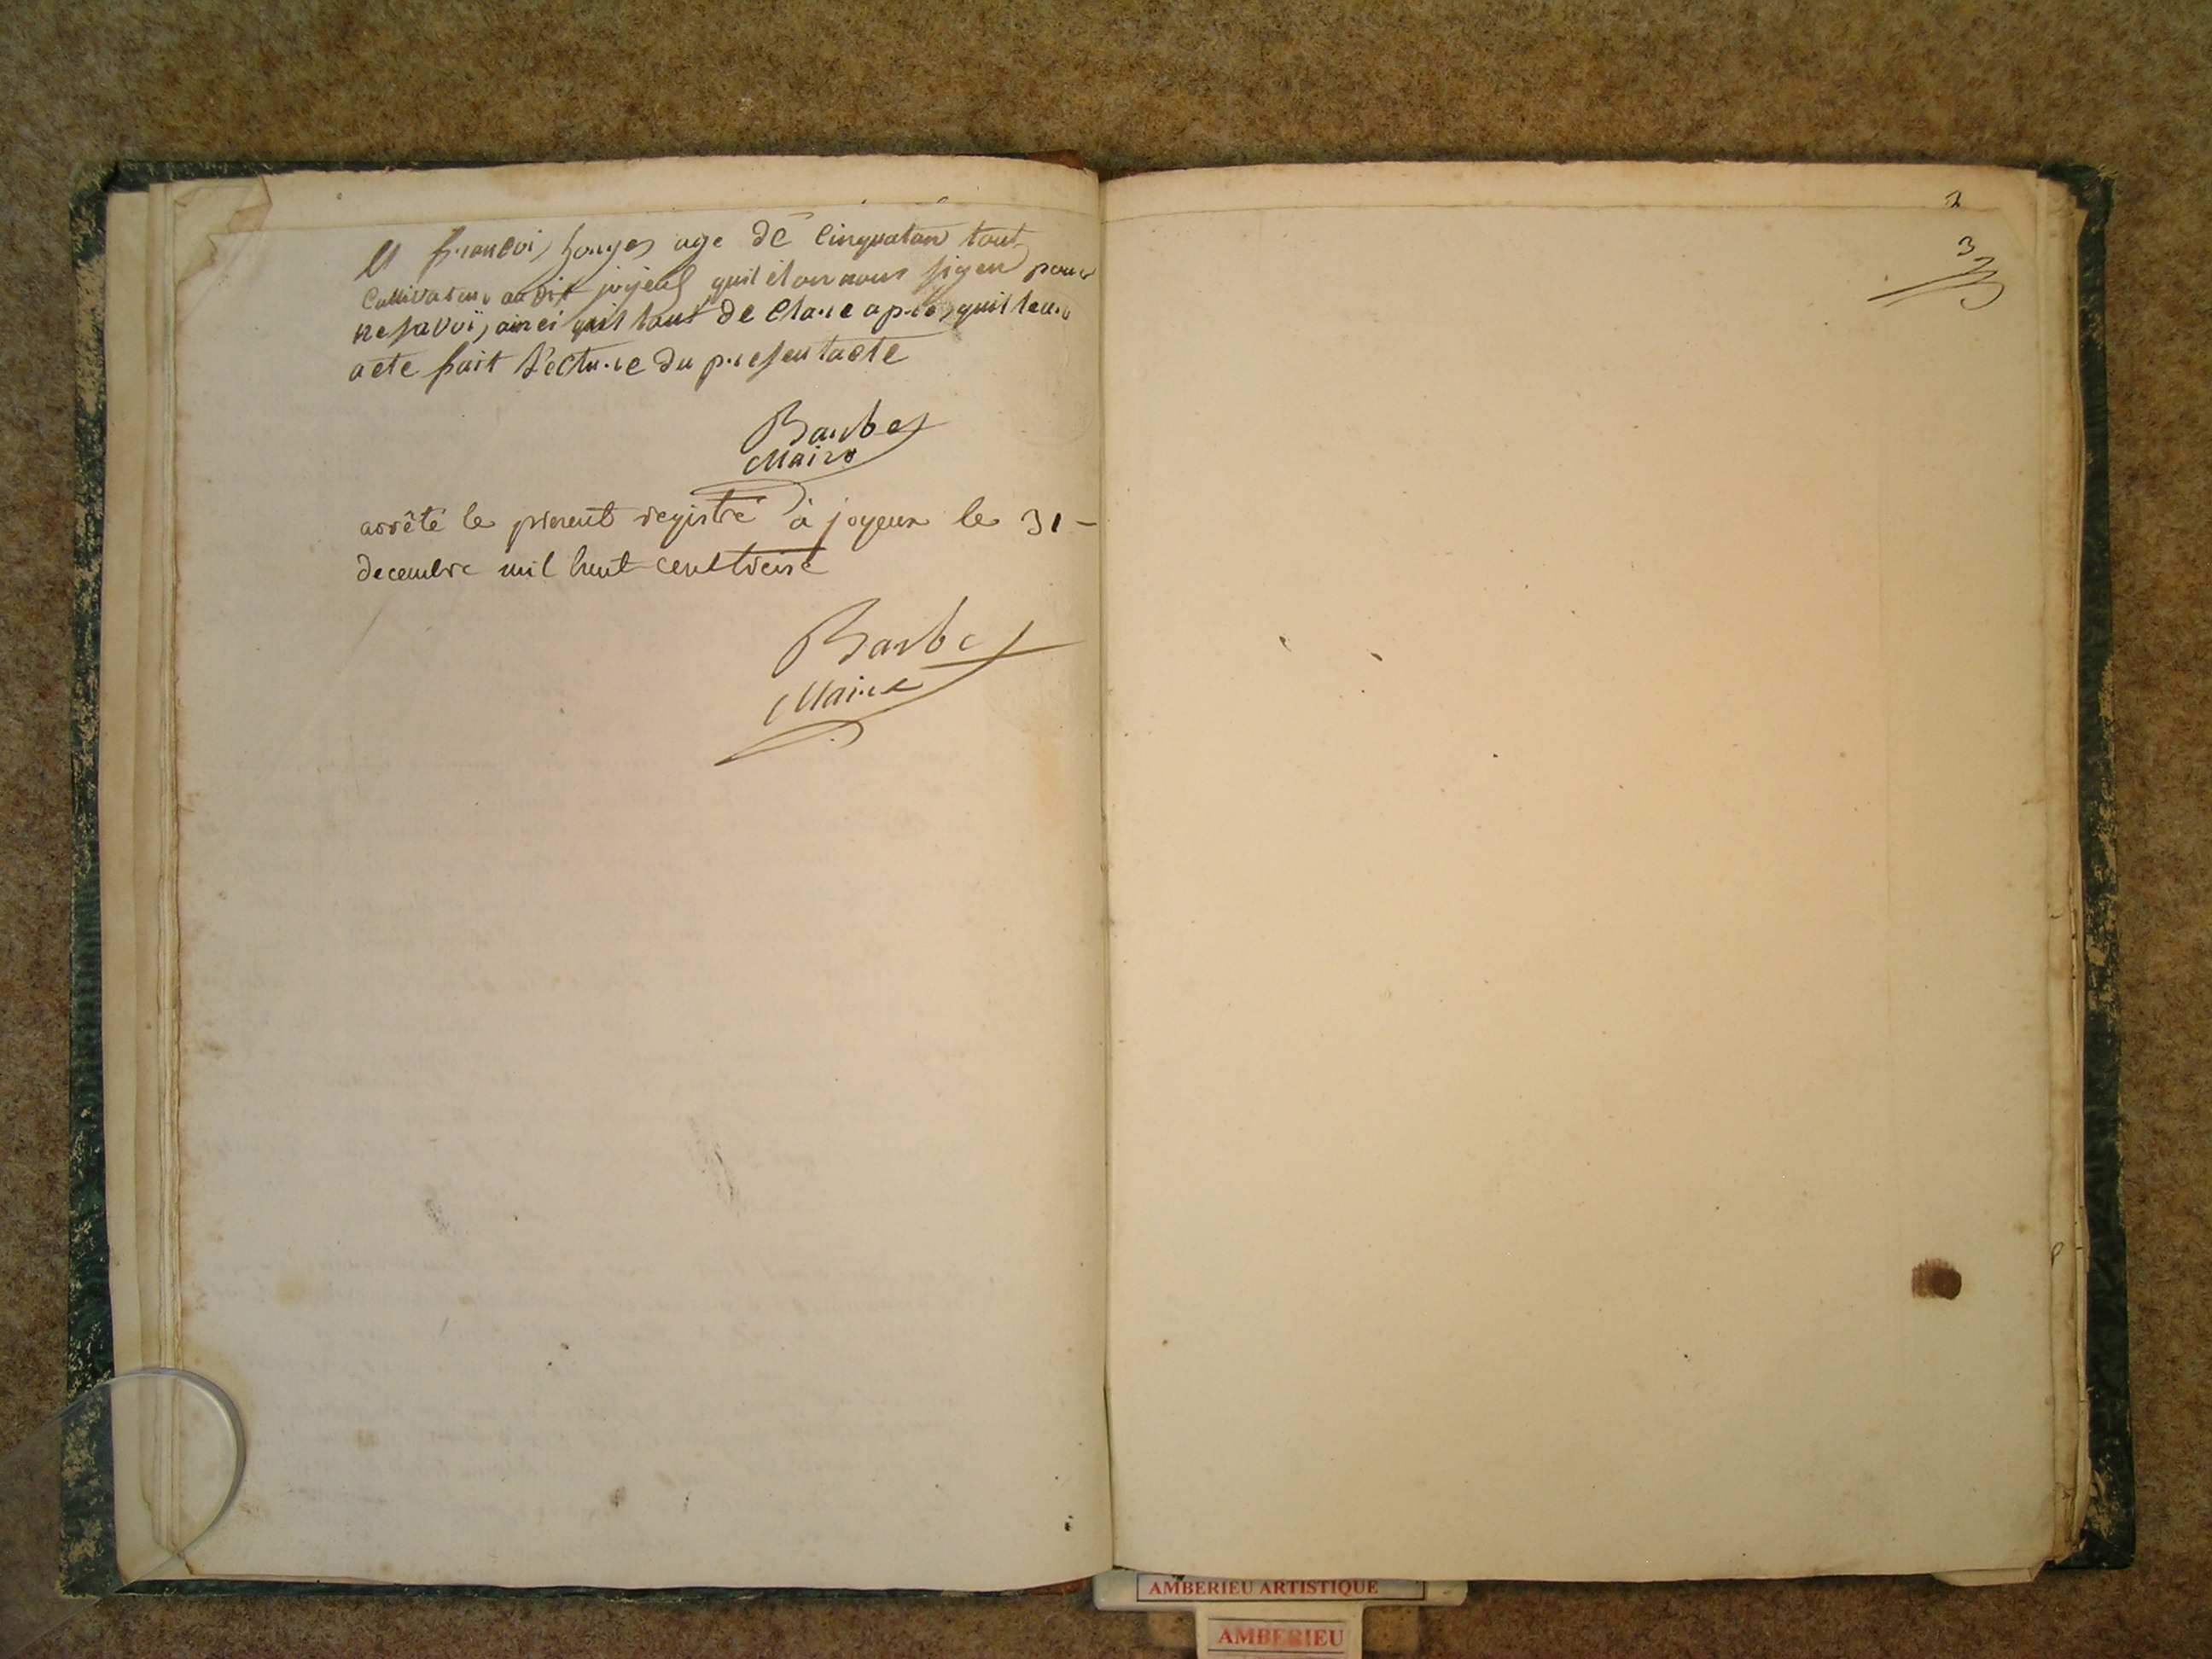 et francois fouges age de cinquatan tout
Cultivateur audit joyeux quil et on nous sigen pour
ne savoir ainci quil lont de Clare apres quil leur
acte fait Lecture du presentacte
Barbe
Maire
arrêté le présent registre à joyeux le 31 -
decembre mil huit cent treise
Barbe
Maire
3
AMBERIEU ARTISTIQUE
AMBERIEU